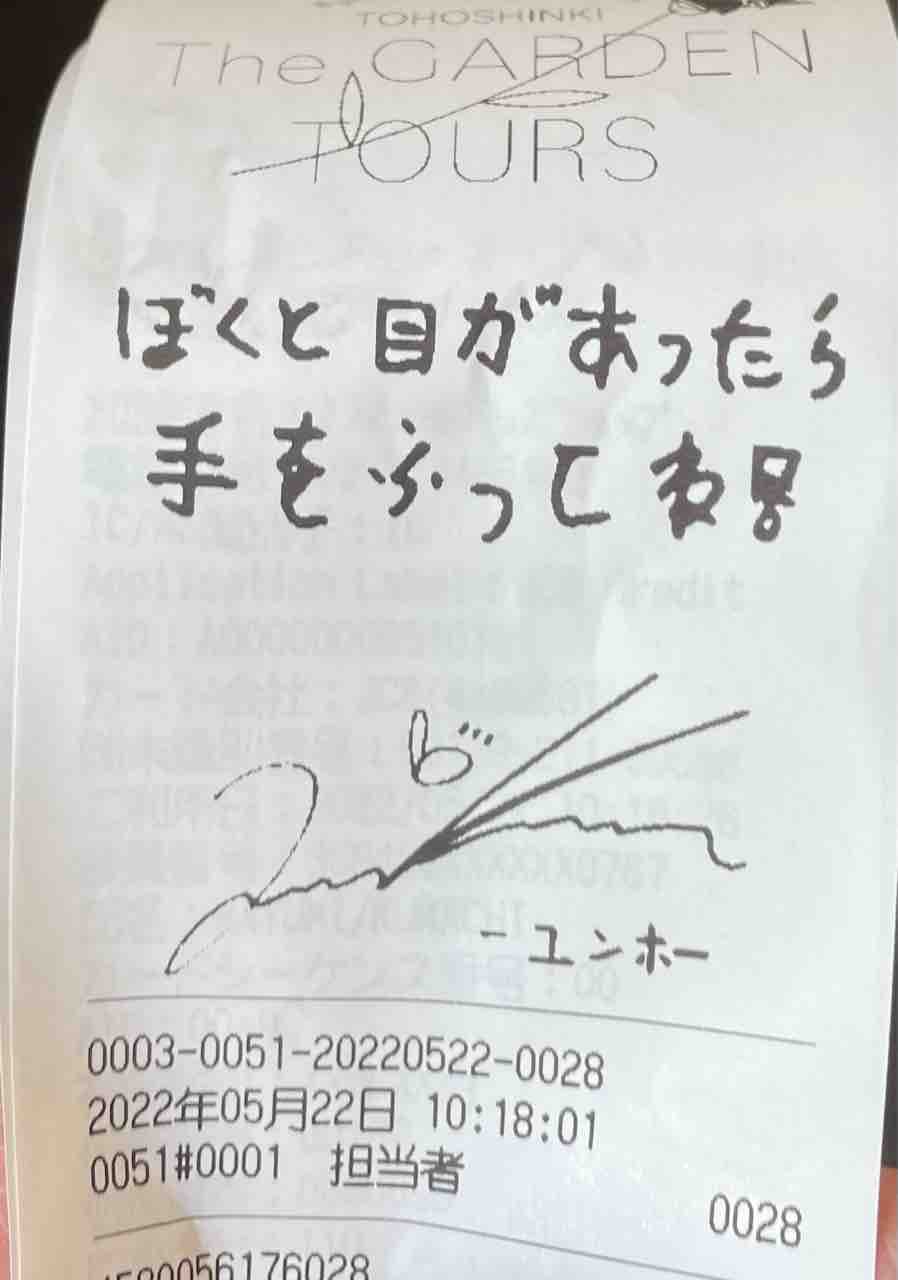 TOHOSHINKI
The GARDEN
TOURS
ぼくと目があったら
手をふってね!!
-ユンホ-
0003-0051-20220522-0028
2022年05月22日 10:18:01
0051#0001 担当者
0028